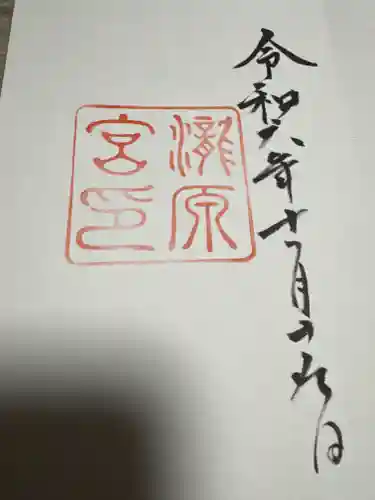 令和六年十一月十九日
瀧原
宮印